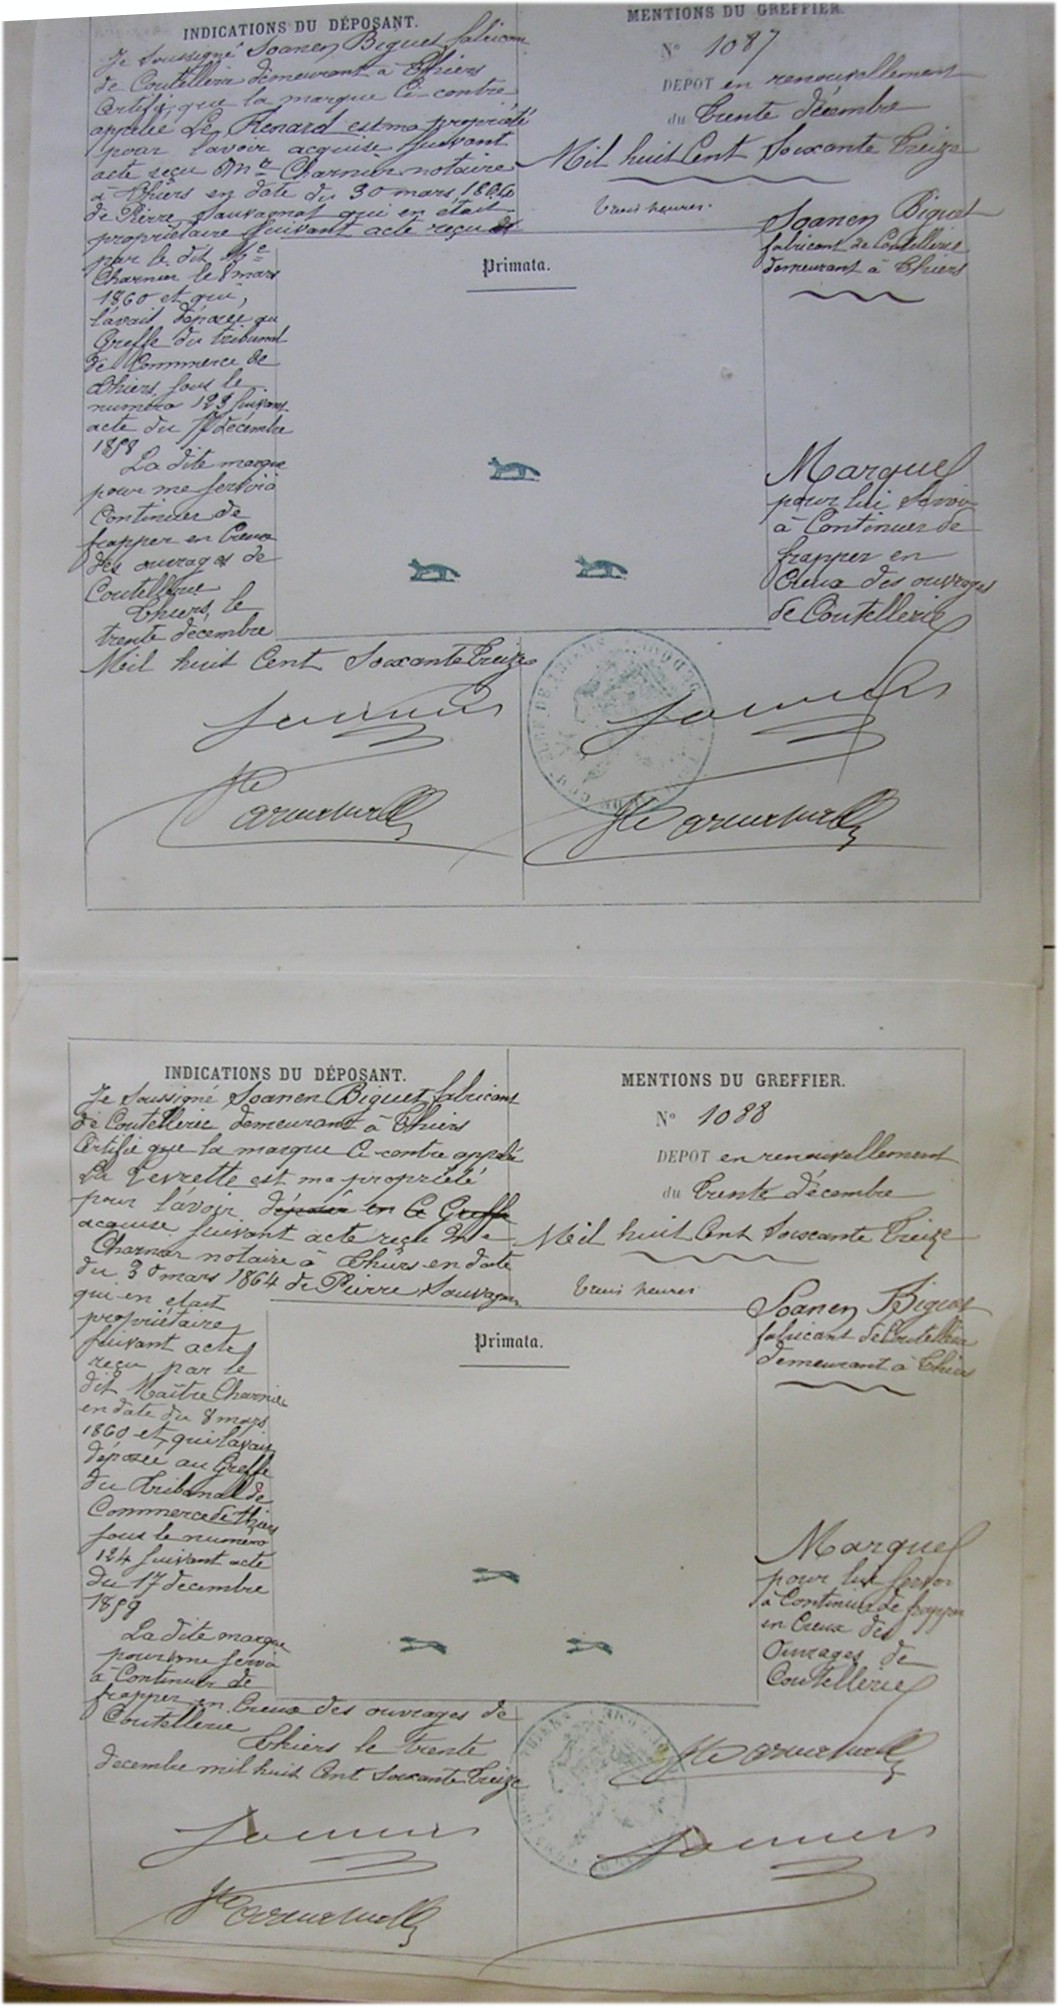 INDICATIONS DU DÉPOSANT.
Je soussigné Soanen Biguet fabricant
de Coutellerie demeurant à Thiers
Certifie que la marque Ci-contre
appelée Le Renard est ma propriété
pour l'avoir acquise suivant
acte reçu Charnier notaire
à Thiers en date du 30 mars 1864
de Pierre Sauvagnat qui en était
propriétaire suivant acte reçu
par le dit Me
Charnier le 8 mars
1860 et qui,
l'avait déposée au
Greffe du tribunal
de Commerce de
Thiers sous le
numéro 123 suivant
acte du 17 décembre
1858
La dite marque
pour me servir à
Continuer de
frapper en Creux
des ouvrages de
Coutellerie
Thiers, le
trente décembre
Mil huit Cent Soixante Treize
MENTIONS DU GREFFIER.
N° 1087
DEPOT en renouvellement
du Trente décembre
Mil huit Cent Soixante Treize
Trois heures.
Soanen Biguet
fabricant de Coutellerie
demeurant à Thiers
Primata.
Marque
pour lui Servir
à Continuer de
frapper en
Creux des ouvrages
de Coutellerie
INDICATIONS DU DÉPOSANT.
Je Soussigné Soanen Biguet fabricant
de Coutellerie demeurant à Thiers
Certifie que la marque Ci-contre appelée
La Levrette est ma propriété
pour l'avoir déposée en Ce Greffe
acquise suivant acte reçu Me
Charnier notaire à Thiers en date
du 30 mars 1864 de Pierre Sauvagnat
qui en était
propriétaire
suivant acte
reçu par le
dit Maître Charnier
en date du 8 mars
1860 et qui l'avait
déposée au Greffe
du Tribunal de
Commerce de Thiers
sous le numéro
124 suivant acte
du 17 décembre
1859
La dite marque
pour me servir
à Continuer de
frapper en Creux des ouvrages de
Coutellerie
Thiers le Trente
décembre mil huit Cent Soixante Treize
MENTIONS DU GREFFIER.
N° 1088
DEPOT en renouvellement
du Trente décembre
Mil huit Cent Soixante Treize
Trois heures
Soanen Biguet
fabricant de Coutellerie
demeurant à Thiers
Primata.
Marque
pour lui servir
à Continuer de frapper
en Creux des
Ouvrages de
Coutellerie